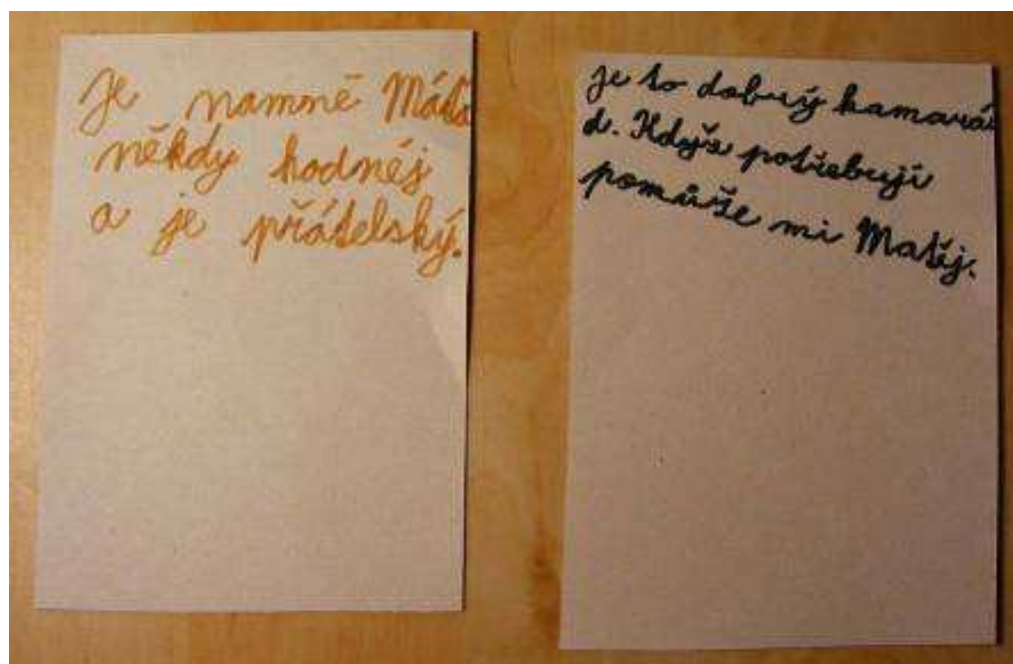 je namně Máťa
někdy hodnéj
a je přátelský.
je to dobrý kamará
d. Když potřebuji
pomůže mi Matěj.